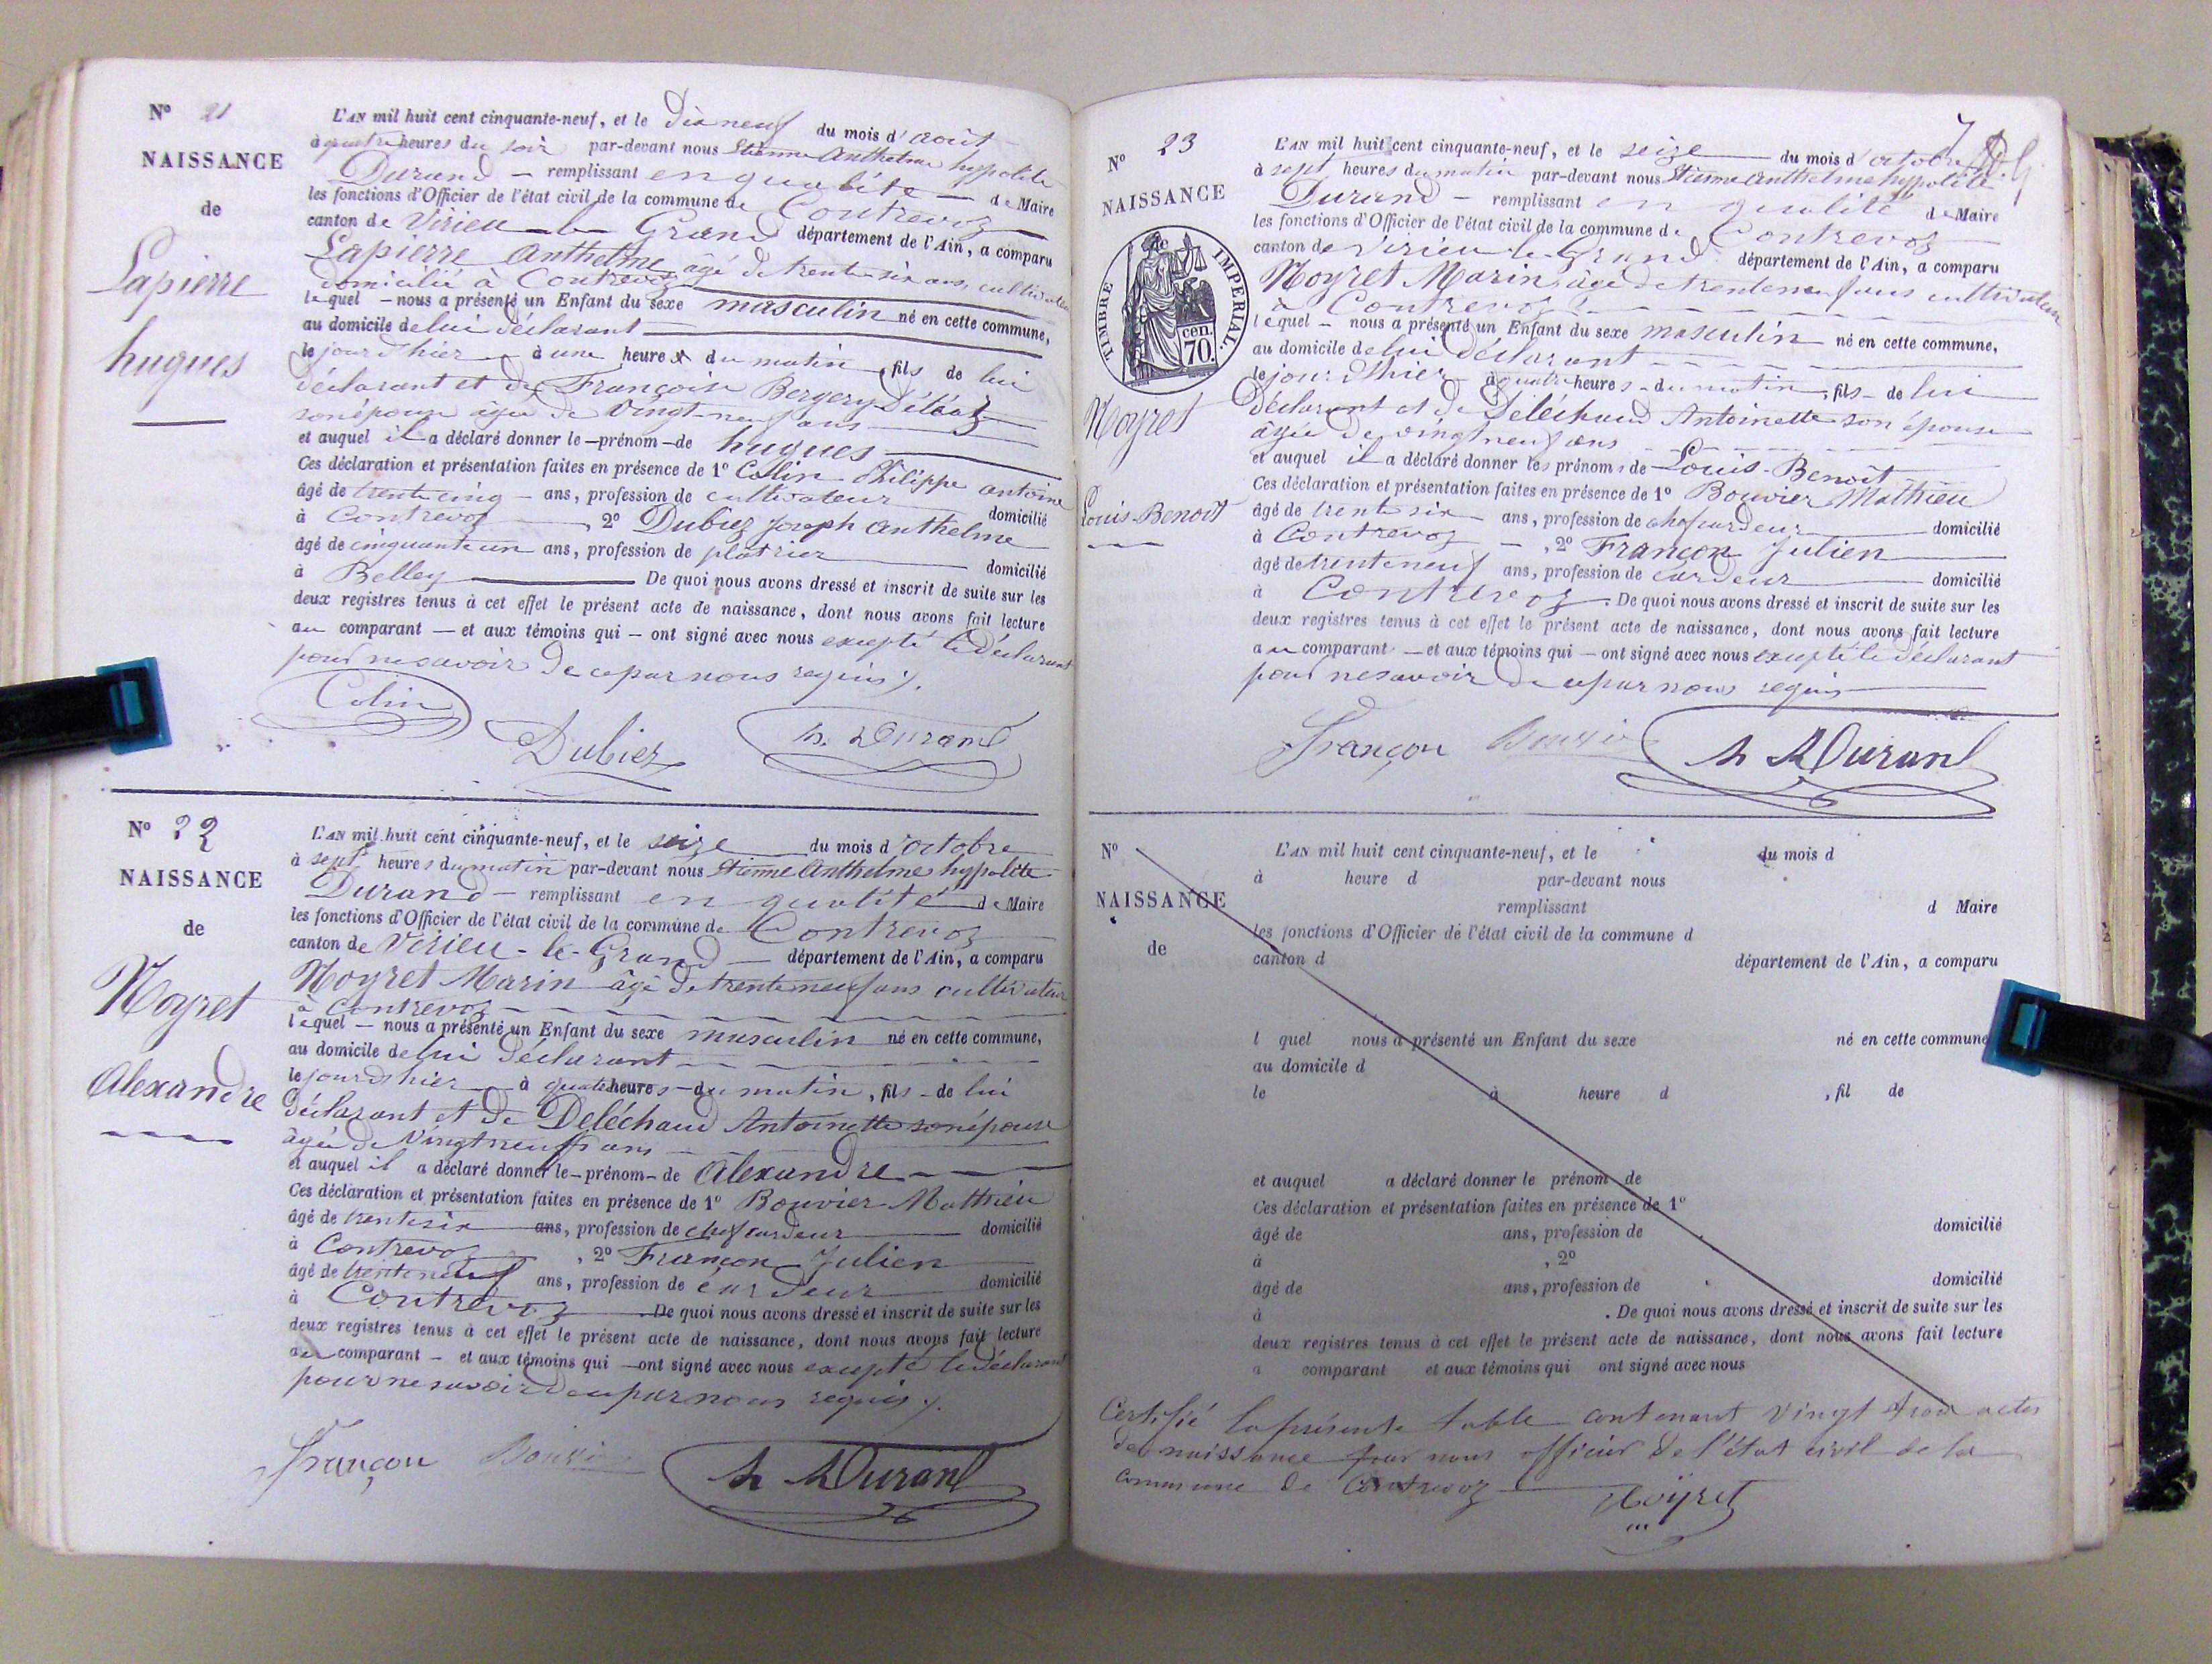 N° 21
NAISSANCE
de
Lapierre
hugues
L'AN mil huit cent cinquante-neuf, et le Dix neuf du mois d'août
à quatre heures du soir par-devant nous Etienne Anthelme hypolite
Durand - remplissant en qualité de Maire
les fonctions d'Officier de l'état civil de la commune de Contrevoz
canton de Virieu-le-Grand département de l'Ain, a comparu
Lapierre Anthelme âgé de trente six ans, cultivateur
domicilié à Contrevoz
lequel - nous a présenté un Enfant du sexe masculin né en cette commune,
au domicile de lui déclarant
le jour d'hier à une heure du matin, fils de lui
déclarant et de Françoise Bergery
son épouse âgée de vingt-neuf ans
et auquel il a déclaré donner le - prénom - de hugues
Ces déclaration et présentation faites en présence de 1° Colin Philippe antoine
âgé de trente cinq - ans, profession de cultivateur domicilié
à Contrevoz, 2° Dubiez Joseph Anthelme
âgé de cinquante un ans, profession de plâtrier domicilié
à Belley De quoi nous avons dressé et inscrit de suite sur les
deux registres tenus à cet effet le présent acte de naissance, dont nous avons fait lecture
au comparant - et aux témoins qui - ont signé avec nous excepté le déclarant
pour ne savoir de ce par nous requis.
Colin
Dubiez
h. Durand
N° 22
NAISSANCE
de
Noyret
Alexandre
L'AN mil huit cent cinquante-neuf, et le seize du mois d'octobre
à sept heures du matin par-devant nous Etienne Anthelme hypolite
Durand - remplissant en qualité de Maire
les fonctions d'Officier de l'état civil de la commune de Contrevoz
canton de Virieu-le-Grand - département de l'Ain, a comparu
Noyret Marin âgé de trente neuf ans cultivateur
à Contrevoz
lequel - nous a présenté un Enfant du sexe masculin né en cette commune,
au domicile de lui déclarant
le jour d'hier à quatre heures - du matin, fils - de lui
déclarant et de Deléchaud Antoinette son épouse
âgée de vingt neuf ans
et auquel il a déclaré donner le - prénom - de Alexandre
Ces déclaration et présentation faites en présence de 1° Bouvier Mathieu
âgé de trente six ans, profession de chef cardeur domicilié
à Contrevoz, 2° Françon Julien
âgé de trente neuf ans, profession de cardeur domicilié
à Contrevoz. De quoi nous avons dressé et inscrit de suite sur les
deux registres tenus à cet effet le présent acte de naissance, dont nous avons fait lecture
au comparant - et aux témoins qui - ont signé avec nous excepté le déclarant
pour ne savoir de ce par nous requis.
Françon Bouvier h Durand
7
N° 23
NAISSANCE
de
TIMBRE IMPERIAL.
70 cen.
Noyret
Louis-Benoit
L'AN mil huit cent cinquante-neuf, et le seize du mois d'octobre
à sept heures du matin par-devant nous Etienne Anthelme hypolite
Durand - remplissant en qualité de Maire
les fonctions d'Officier de l'état civil de la commune de Contrevoz
canton de Virieu-le-Grand département de l'Ain, a comparu
Noyret Marin, âgé de trente neuf ans cultivateur
à Contrevoz
lequel - nous a présenté un Enfant du sexe masculin né en cette commune,
au domicile de lui déclarant
le jour d'hier à quatre heures - du matin, fils - de lui
déclarant et de Deléchaud Antoinette son épouse
âgée de vingt neuf ans
et auquel il a déclaré donner les prénoms de Louis-Benoit
Ces déclaration et présentation faites en présence de 1° Bouvier Mathieu
âgé de trente six ans, profession de chef cardeur domicilié
à Contrevoz -, 2° Françon Julien
âgé de trente neuf ans, profession de cardeur domicilié
à Contrevoz. De quoi nous avons dressé et inscrit de suite sur les
deux registres tenus à cet effet le présent acte de naissance, dont nous avons fait lecture
au comparant - et aux témoins qui - ont signé avec nous excepté le déclarant
pour ne savoir de ce par nous requis
Françon Bouvier h Durand
N°
NAISSANCE
de
L'AN mil huit cent cinquante-neuf, et le du mois d
à heure d par-devant nous
remplissant d Maire
les fonctions d'Officier de l'état civil de la commune d
canton d département de l'Ain, a comparu
l quel nous a présenté un Enfant du sexe né en cette commune
au domicile d
le à heure d , fil de
et auquel a déclaré donner le prénom de
Ces déclaration et présentation faites en présence de 1°
âgé de ans, profession de domicilié
à , 2°
âgé de ans, profession de domicilié
à . De quoi nous avons dressé et inscrit de suite sur les
deux registres tenus à cet effet le présent acte de naissance, dont nous avons fait lecture
a comparant et aux témoins qui ont signé avec nous
Certifié la présente table contenant vingt trois actes
de naissance par nous officier de l'état civil de la
commune de Contrevoz
Noyret